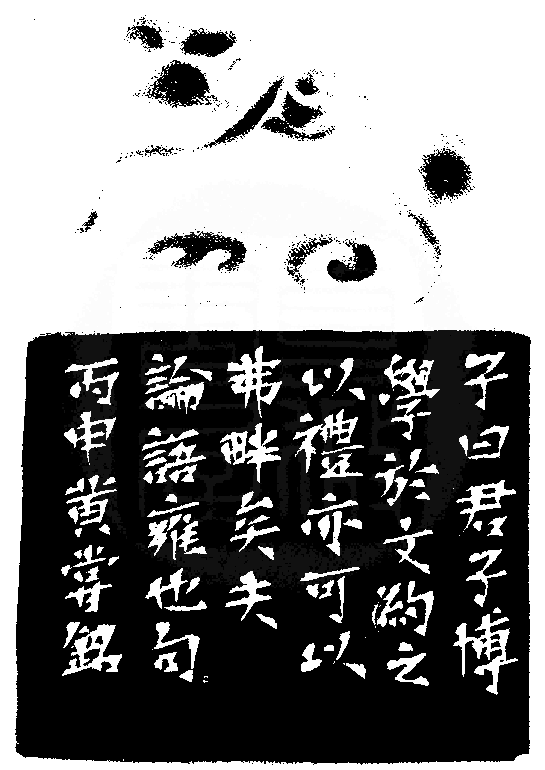 子曰君子博
學於文約之
以禮亦可以
弗畔矣夫
論語雍也句
丙申黄甞銘